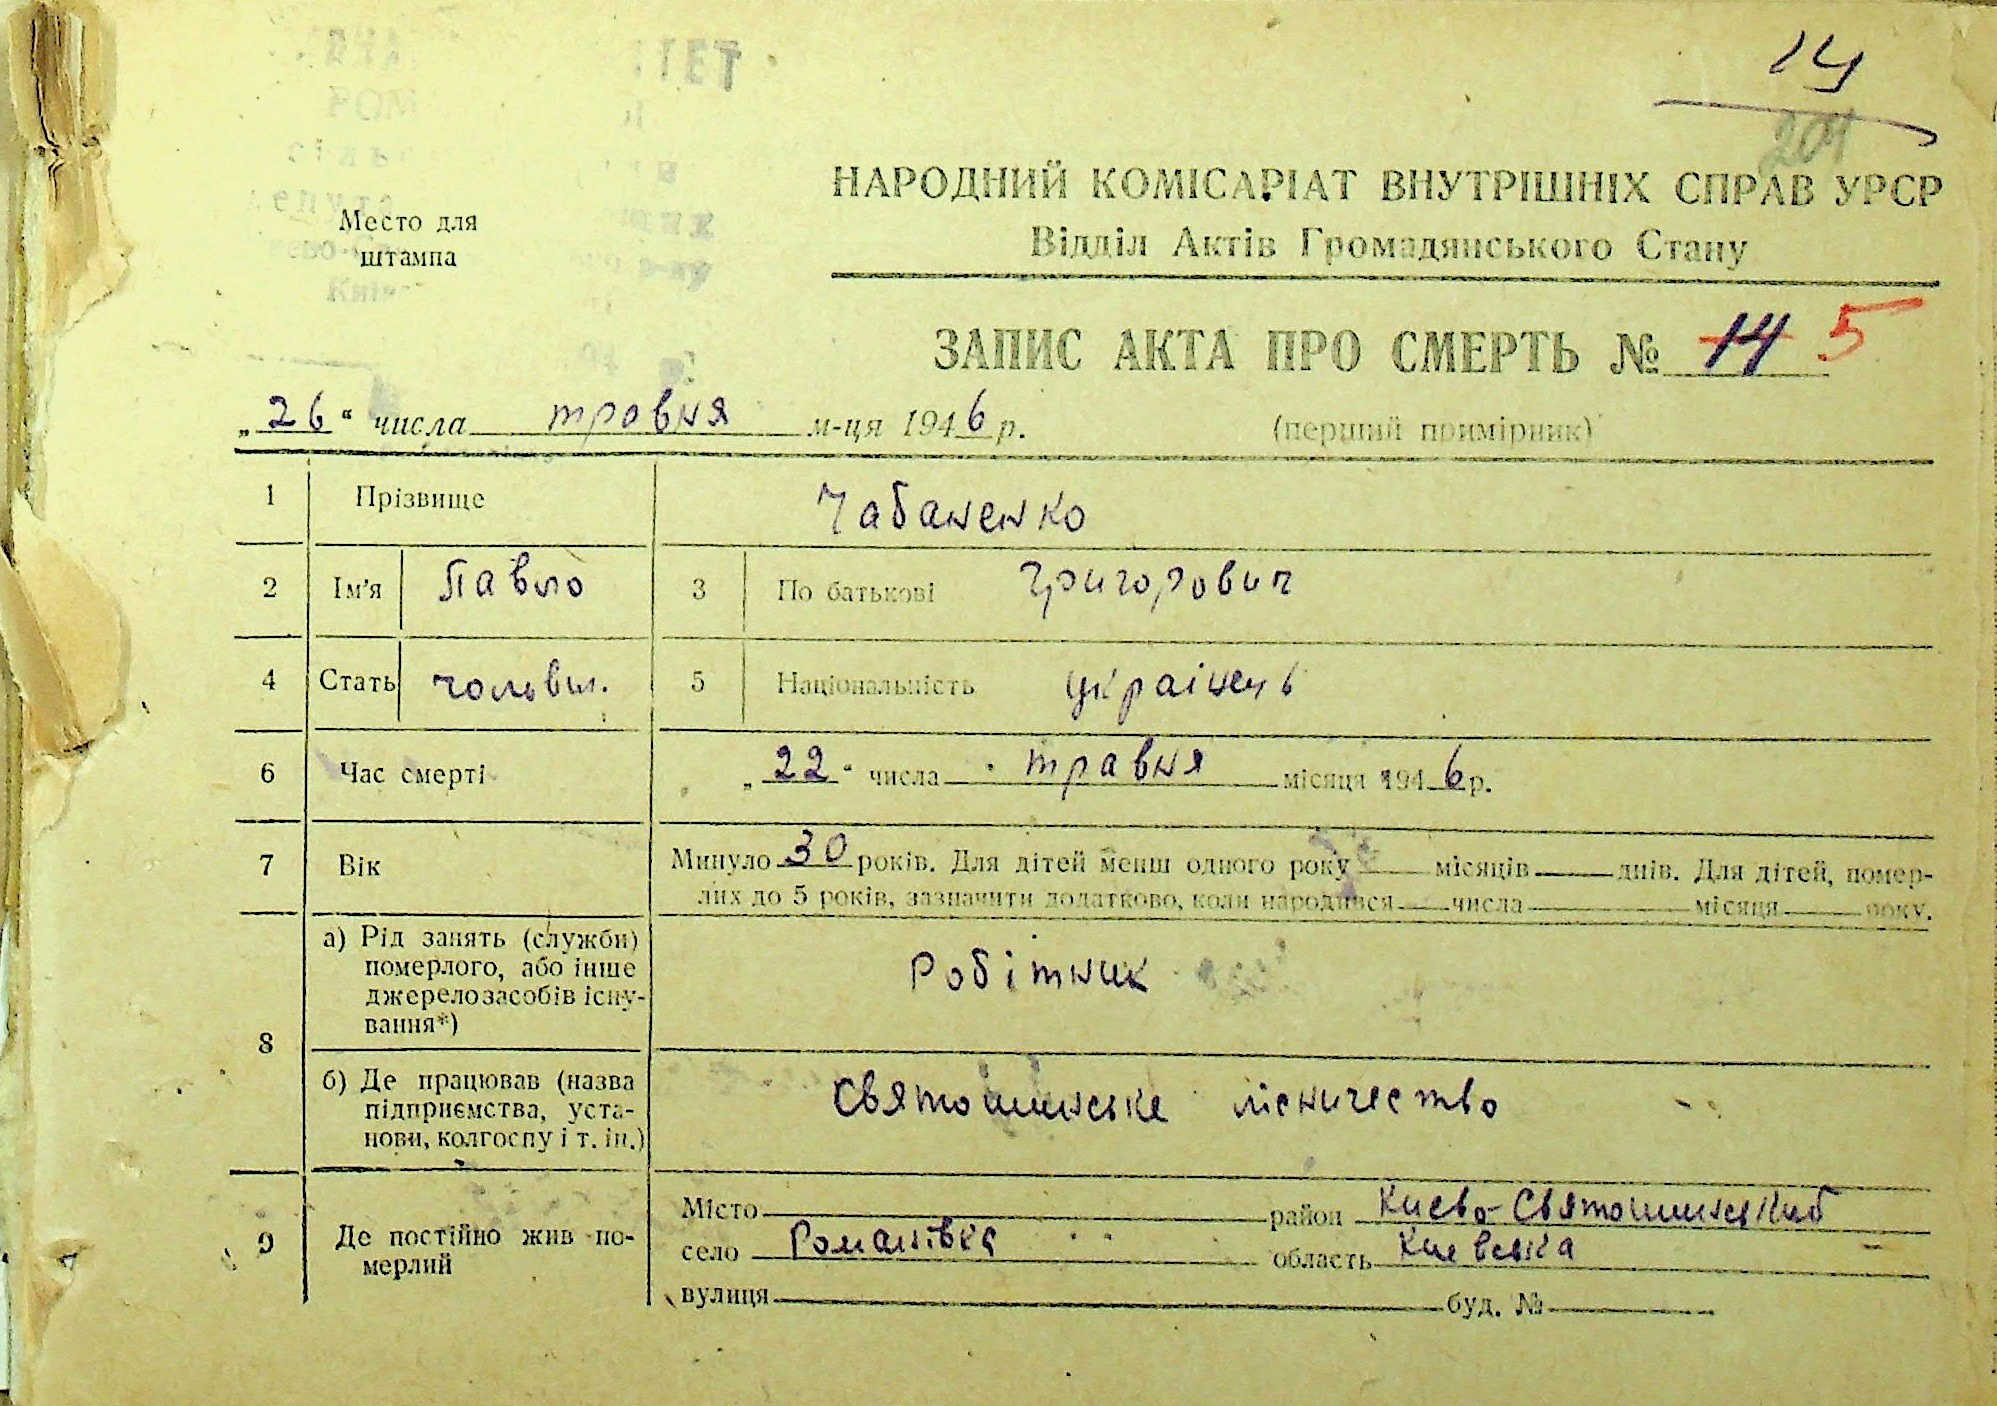 14
201
НАРОДНИЙ КОМІСАРІАТ ВНУТРІШНІХ СПРАВ УРСР
Відділ Актів Громадянського Стану
Место для
штампа
ЗАПИС АКТА ПРО СМЕРТЬ № 14 5
„26“ числа травня м-ця 1946 р.
(перший примірник)
1 Прізвище Чабаненко
2 Ім'я Павло 3 По батькові Григорович
4 Стать чоловіч. 5 Національність українець
6 Час смерті „22“ числа травня місяця 1946 р.
7 Вік Минуло 30 років. Для дітей менш одного року місяців днів. Для дітей, помер-
лих до 5 років, зазначити додатково, коли народився числа місяця року.
8 а) Рід занять (служби)
померлого, або інше
джерело засобів існу-
вання*)
Робітник
б) Де працював (назва
підприємства, уста-
нови, колгоспу і т. ін.)
Святошинське лісничество
9 Де постійно жив по-
мерлий
Місто район Києво-Святошинський
село Романівка область Киевська
вулиця буд. №